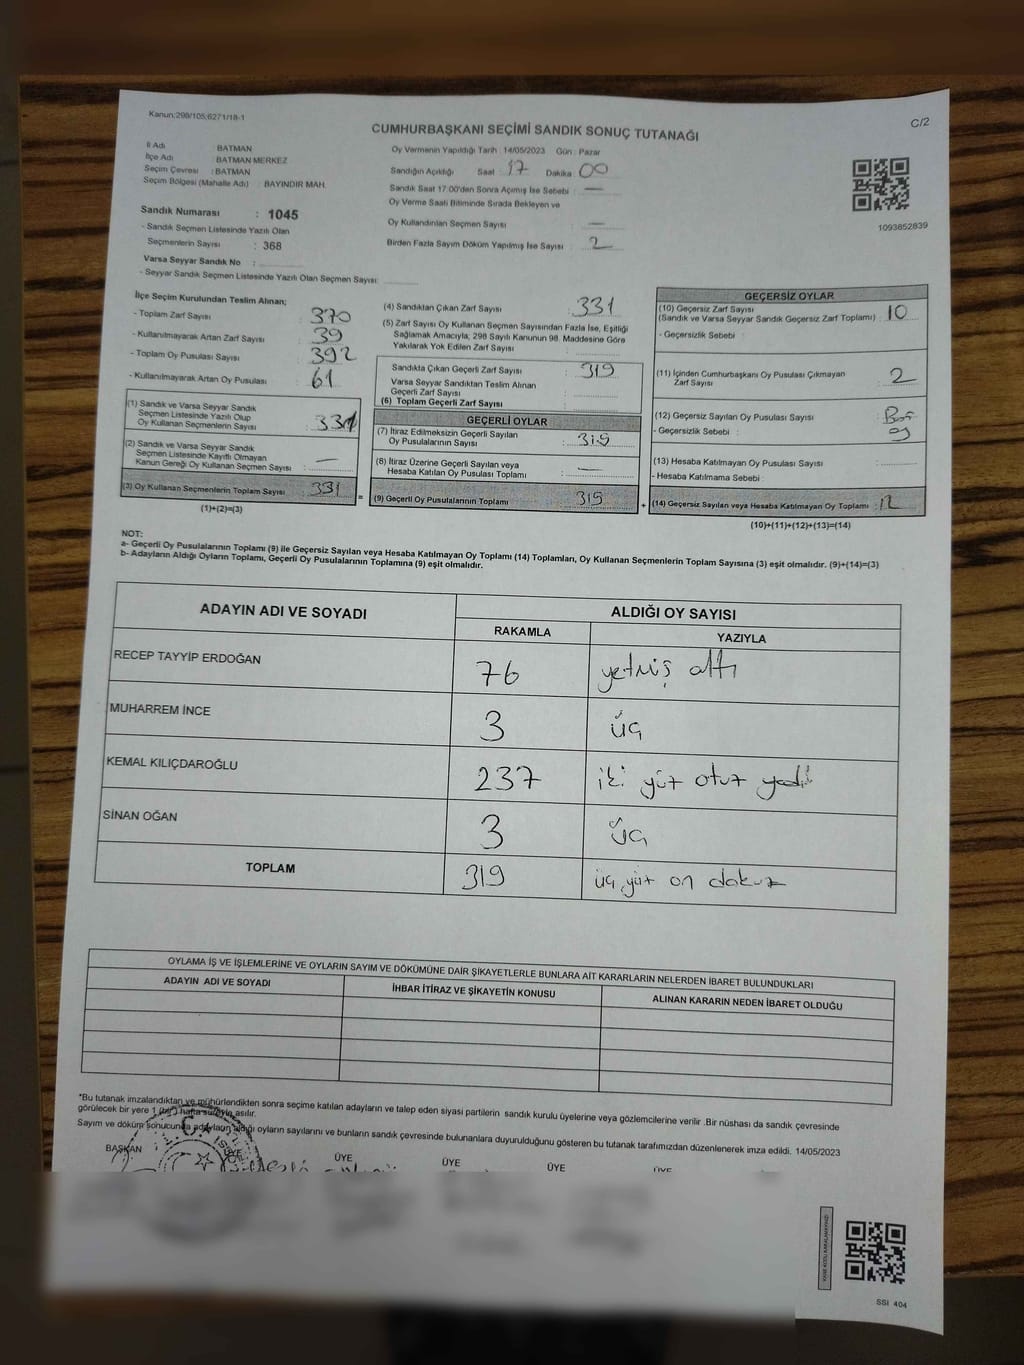 Kanun:298/105;6271/18-1
C/2
CUMHURBAŞKANI SEÇİMİ SANDIK SONUÇ TUTANAĞI
İl Adı : BATMAN
İlçe Adı : BATMAN MERKEZ
Seçim Çevresi : BATMAN
Seçim Bölgesi (Mahalle Adı) : BAYINDIR MAH.
Sandık Numarası : 1045
- Sandık Seçmen Listesinde Yazılı Olan
Seçmenlerin Sayısı : 368
Varsa Seyyar Sandık No :
- Seyyar Sandık Seçmen Listesinde Yazılı Olan Seçmen Sayısı:
Oy Vermenin Yapıldığı Tarih : 14/05/2023 Gün : Pazar
Sandığın Açıldığı Saat : 17 Dakika : 00
Sandık Saat 17:00'den Sonra Açımış İse Sebebi : —
Oy Verme Saati Bitiminde Sırada Bekleyen ve
Oy Kullandırılan Seçmen Sayısı : —
Birden Fazla Sayım Döküm Yapılmış İse Sayısı : 2
1093852839
İlçe Seçim Kurulundan Teslim Alınan;
- Toplam Zarf Sayısı : 370
- Kullanılmayarak Artan Zarf Sayısı : 39
- Toplam Oy Pusulası Sayısı : 392
- Kullanılmayarak Artan Oy Pusulası : 61
(1) Sandık ve Varsa Seyyar Sandık
Seçmen Listesinde Yazılı Olup
Oy Kullanan Seçmenlerin Sayısı : 331
(2) Sandık ve Varsa Seyyar Sandık
Seçmen Listesinde Kayıtlı Olmayan
Kanun Gereği Oy Kullanan Seçmen Sayısı : —
(3) Oy Kullanan Seçmenlerin Toplam Sayısı : 331
(1)+(2)=(3)
=
(4) Sandıktan Çıkan Zarf Sayısı : 331
(5) Zarf Sayısı Oy Kullanan Seçmen Sayısından Fazla İse, Eşitliği
Sağlamak Amacıyla, 298 Sayılı Kanunun 98. Maddesine Göre
Yakılarak Yok Edilen Zarf Sayısı :
Sandıkta Çıkan Geçerli Zarf Sayısı : 319
Varsa Seyyar Sandıktan Teslim Alınan
Geçerli Zarf Sayısı :
(6) Toplam Geçerli Zarf Sayısı :
GEÇERLİ OYLAR
(7) İtiraz Edilmeksizin Geçerli Sayılan
Oy Pusulalarının Sayısı : 319
(8) İtiraz Üzerine Geçerli Sayılan veya
Hesaba Katılan Oy Pusulası Toplamı : —
(9) Geçerli Oy Pusulalarının Toplamı : 319
+
GEÇERSİZ OYLAR
(10) Geçersiz Zarf Sayısı
(Sandık ve Varsa Seyyar Sandık Geçersiz Zarf Toplamı) : 10
- Geçersizlik Sebebi :
(11) İçinden Cumhurbaşkanı Oy Pusulası Çıkmayan
Zarf Sayısı : 2
(12) Geçersiz Sayılan Oy Pusulası Sayısı : Boş
- Geçersizlik Sebebi : oy
(13) Hesaba Katılmayan Oy Pusulası Sayısı :
- Hesaba Katılmama Sebebi :
(14) Geçersiz Sayılan veya Hesaba Katılmayan Oy Toplamı : 12
(10)+(11)+(12)+(13)=(14)
NOT:
a- Geçerli Oy Pusulalarının Toplamı (9) ile Geçersiz Sayılan veya Hesaba Katılmayan Oy Toplamı (14) Toplamları, Oy Kullanan Seçmenlerin Toplam Sayısına (3) eşit olmalıdır. (9)+(14)=(3)
b- Adayların Aldığı Oyların Toplamı, Geçerli Oy Pusulalarının Toplamına (9) eşit olmalıdır.
ADAYIN ADI VE SOYADI
ALDIĞI OY SAYISI
RAKAMLA YAZIYLA
RECEP TAYYİP ERDOĞAN 76 yetmiş altı
MUHARREM İNCE 3 üç
KEMAL KILIÇDAROĞLU 237 iki yüz otuz yedi
SİNAN OĞAN 3 üç
TOPLAM 319 üç yüz on dokuz
OYLAMA İŞ VE İŞLEMLERİNE VE OYLARIN SAYIM VE DÖKÜMÜNE DAİR ŞİKAYETLERLE BUNLARA AİT KARARLARIN NELERDEN İBARET BULUNDUKLARI
ADAYIN ADI VE SOYADI İHBAR İTİRAZ VE ŞİKAYETİN KONUSU ALINAN KARARIN NEDEN İBARET OLDUĞU
*Bu tutanak imzalandıktan ve mühürlendikten sonra seçime katılan adayların ve talep eden siyasi partilerin sandık kurulu üyelerine veya gözlemcilerine verilir .Bir nüshası da sandık çevresinde
görülecek bir yere 1 (bir) hafta süreyle asılır.
Sayım ve döküm sonucunda adayların aldığı oyların sayılarını ve bunların sandık çevresinde bulunanlara duyurulduğunu gösteren bu tutanak tarafımızdan düzenlenerek imza edildi. 14/05/2023
BAŞKAN ÜYE ÜYE ÜYE ÜYE ÜYE
SSI 404